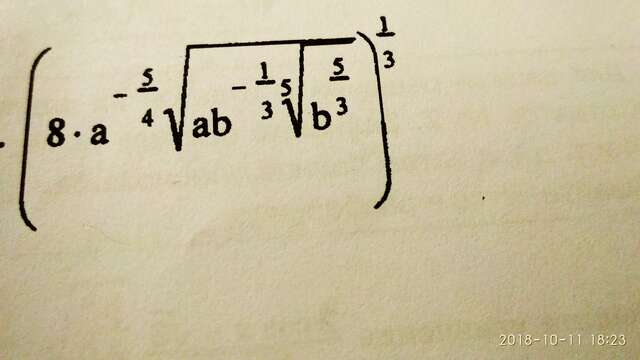 (8 · a^{-\frac{5}{4}} \sqrt{ab^{-\frac{1}{3}} \sqrt[5]{b^{\frac{5}{3}}}})^{\frac{1}{3}}
2018-10-11 18:23